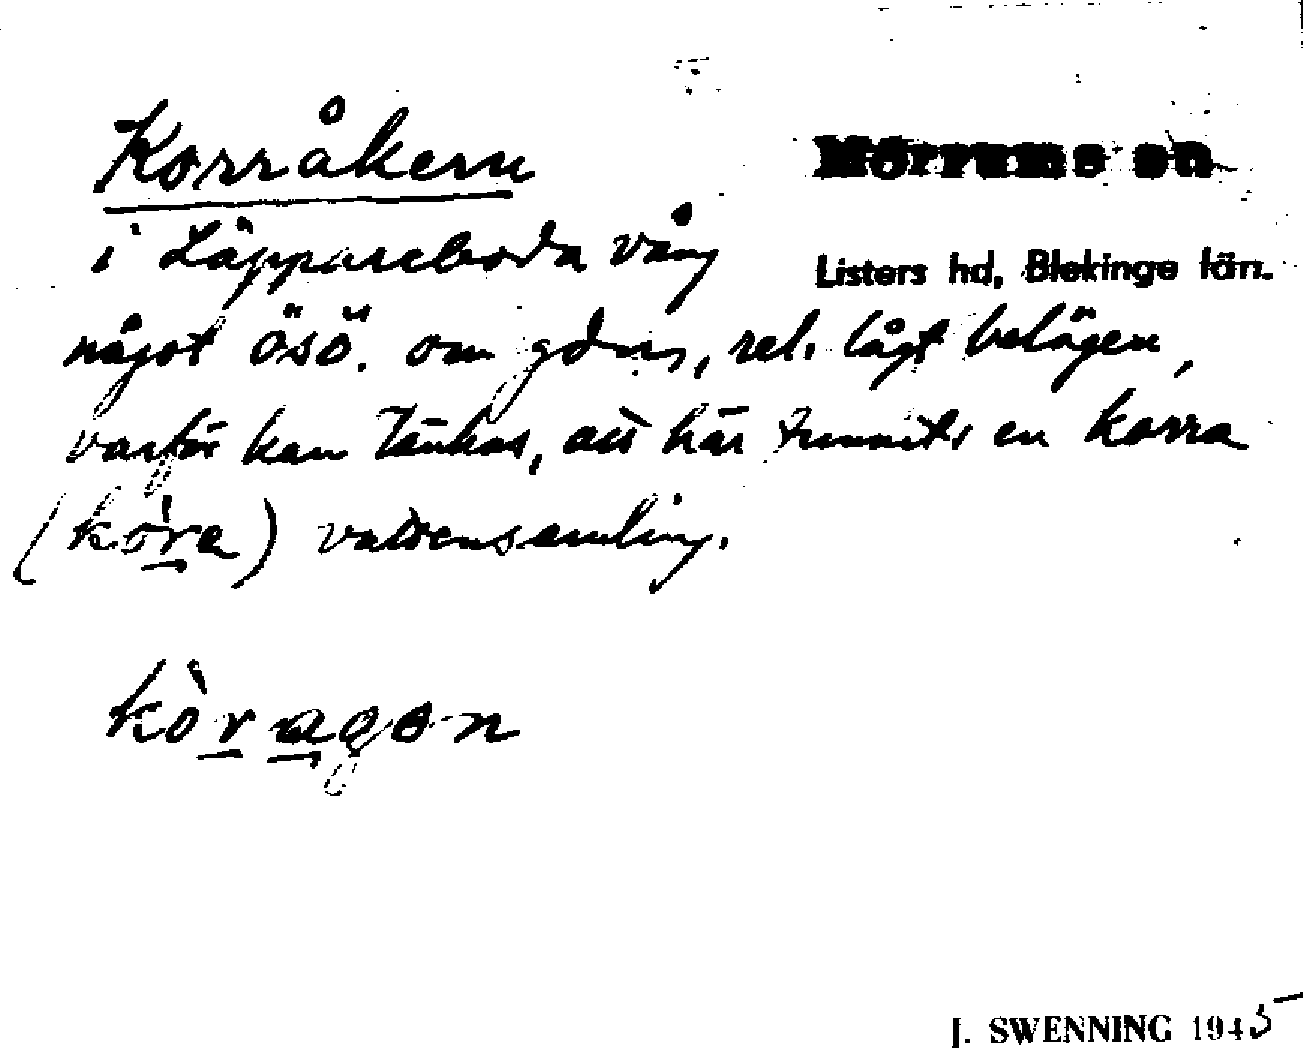 Korråkern
Mörrums sn
i Läppareboda vång
Listers hd, Blekinge län.
något ösö. om gdns, rel. lågt belägen,
varför kan tänkas, att här funnits en korra
(kòra) vattensamling.
kòragon
J. SWENNING 1945